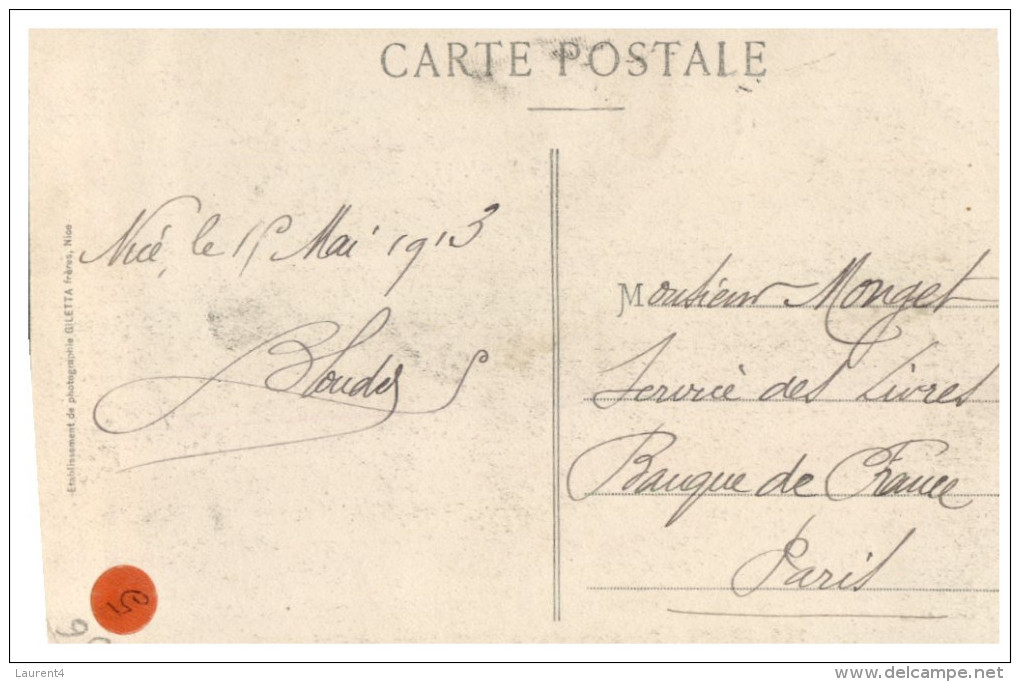 CARTE POSTALE
Nice, le 15 Mai 1913
Etablissement de photographie GILETTA frères, Nice
Monsieur Monget
Service des Livres
Banque de France
Paris
Laurent4
www.delcampe.net